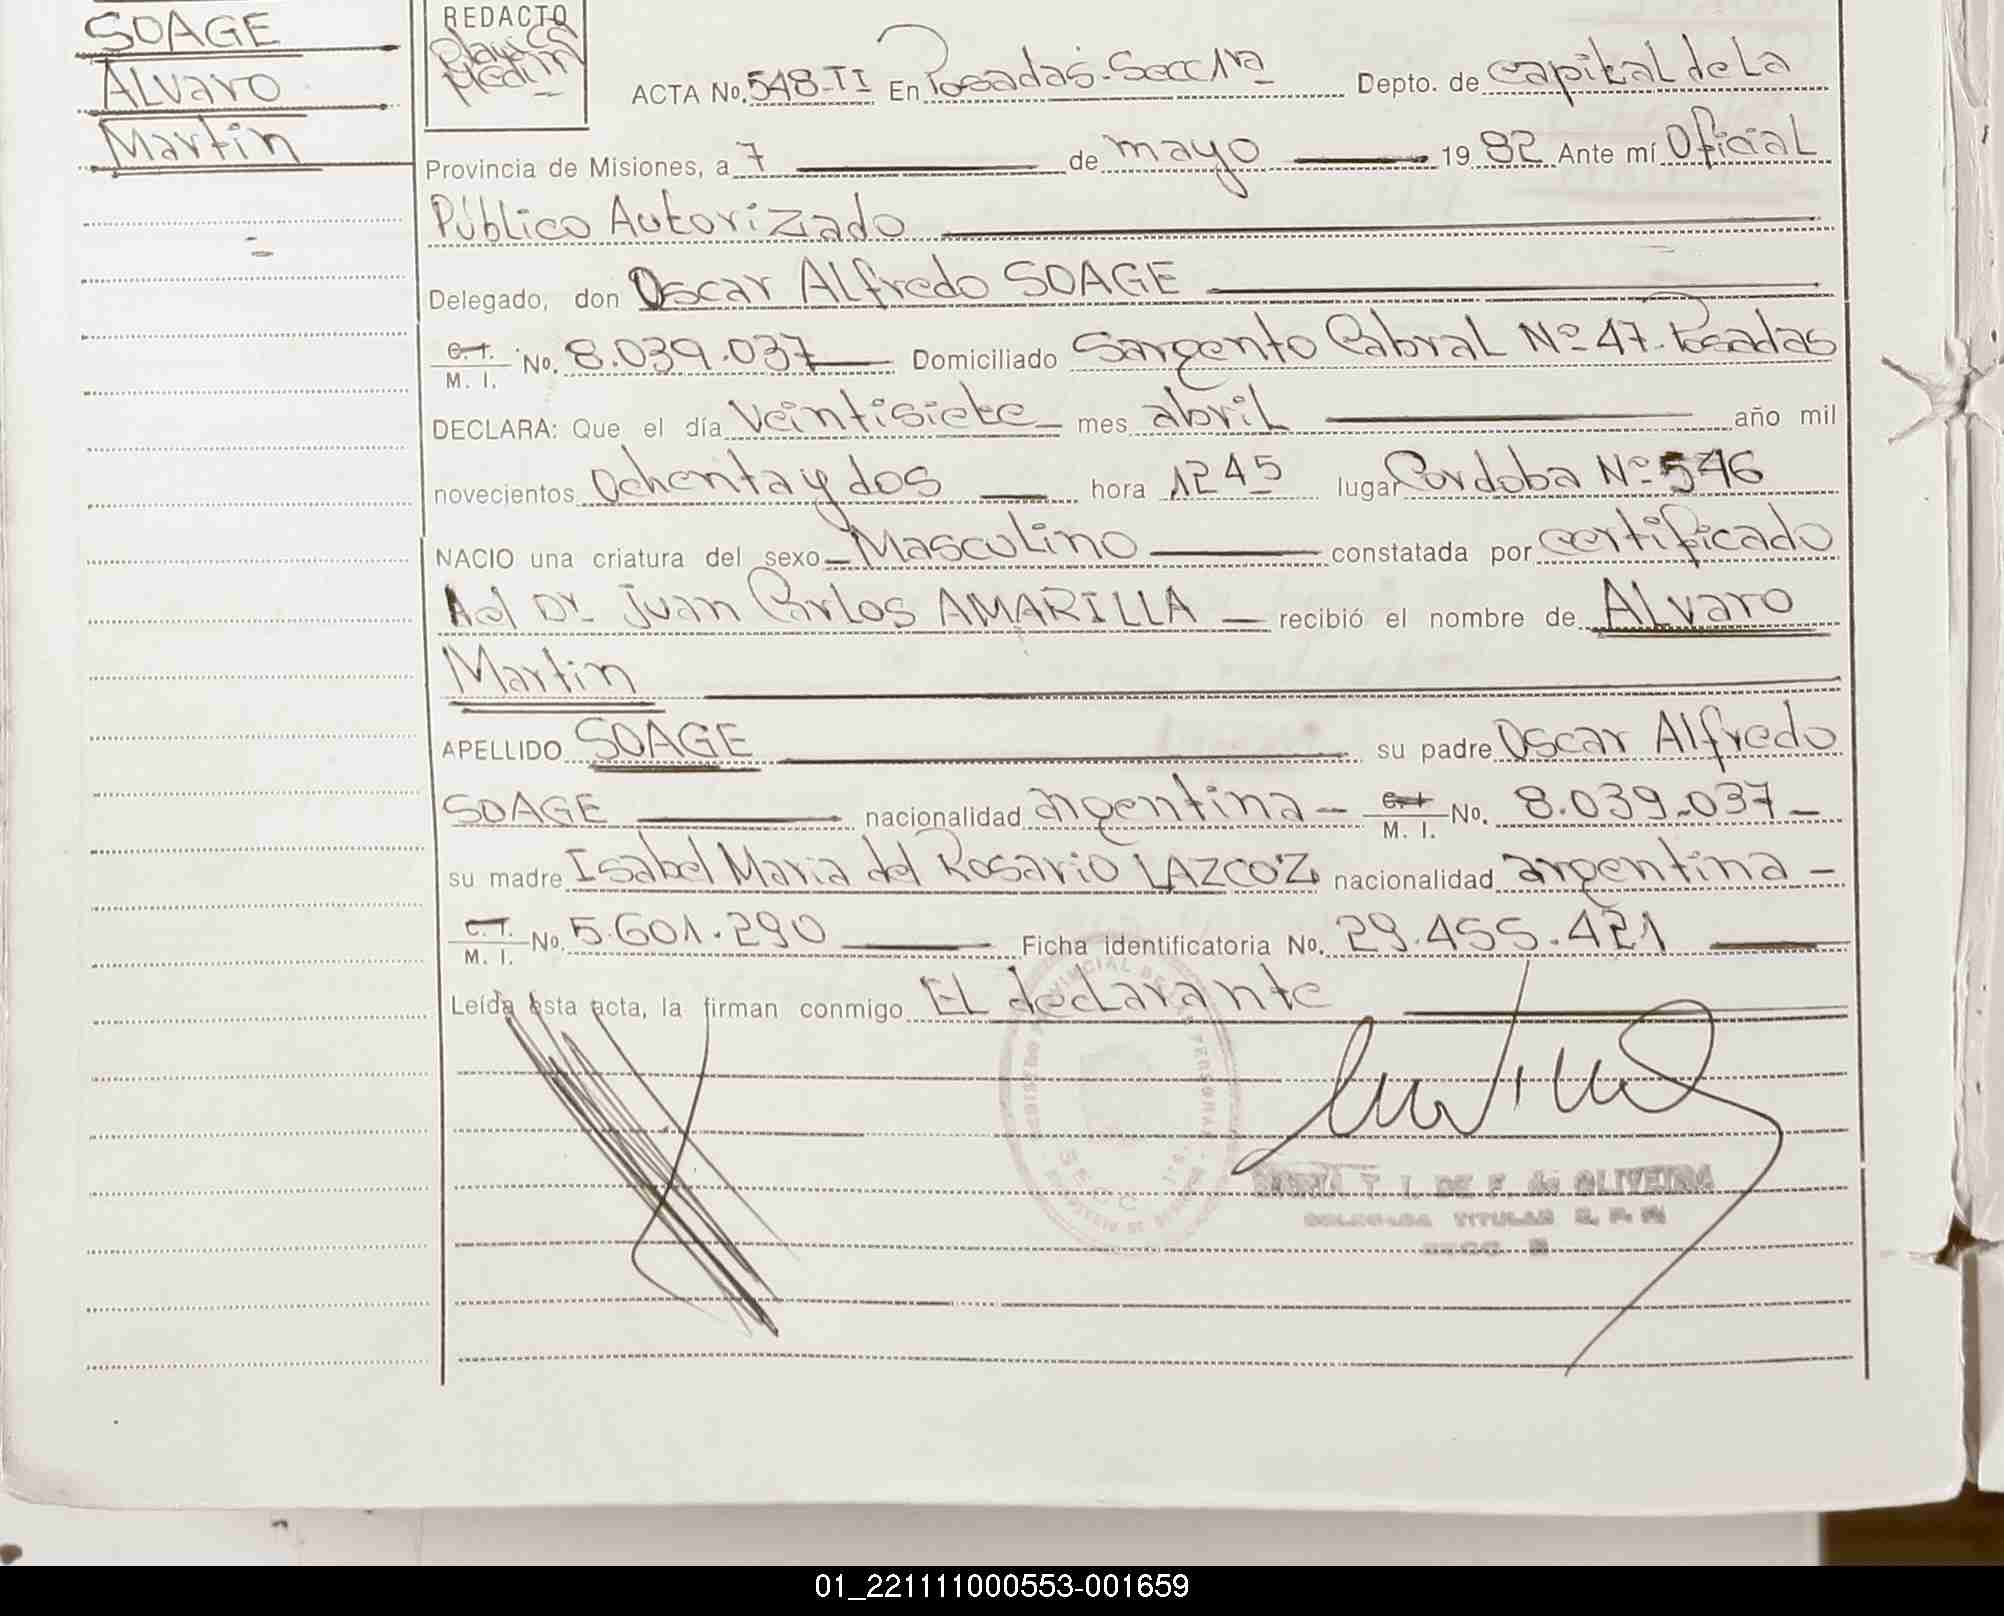 SOAGE
Alvaro
Martin
REDACTO
ACTA No. 548-TI En Posadas-Secc 1ra Depto. de capital de La
Provincia de Misiones, a 7 de mayo 19 82 Ante mí Oficial
Público Autorizado
Delegado, don Oscar Alfredo SOAGE
C.I. M. I. No. 8.039.037 Domiciliado Sargento Cabral Nº 47-Posadas
DECLARA: Que el día Veintisiete mes abril año mil
novecientos Ochenta y dos hora 1245 lugar Cordoba Nº 546
NACIO una criatura del sexo Masculino constatada por certificado
del Dr. Juan Carlos AMARILLA recibió el nombre de Alvaro
Martin
APELLIDO SOAGE su padre Oscar Alfredo
SOAGE nacionalidad argentina - M. I. No. 8.039.037-
su madre Isabel Maria del Rosario LAZCOZ nacionalidad argentina -
C.I. M. I. No. 5.601.290 Ficha identificatoria No. 29.455.421
Leída esta acta, la firman conmigo El declarante
T. I. DE F. de OLIVEIRA
TITULAR
01_221111000553-001659